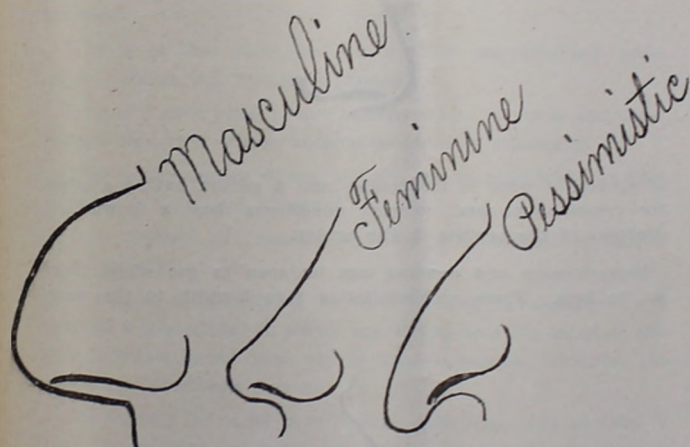 Masculine
Feminine
Pessimistic